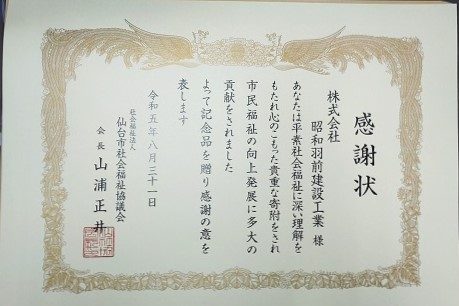 感謝状
株式会社
昭和羽前建設工業 様
あなたは平素社会福祉に深い理解を
もたれ心のこもった貴重な寄附をされ
市民福祉の向上発展に多大の
貢献をされました
よって記念品を贈り感謝の意を
表します
令和五年八月三十一日
社会福祉法人
仙台市社会福祉協議会
会長 山浦正井